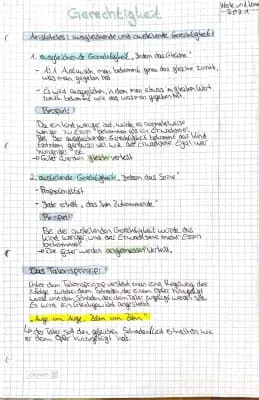 Gerechtigkeit
Werte und Normen
2021
Aristoteles: ausgleichende und austeilende Gerechtigkeit
1. ausgleichende Gerechtigkeit „Jedem das Gleiche"
- 1:1 Austausch, man bekommt genau das gleiche zurück,
was man gegeben hat
- Es wird ausgeglichen, indem man etwas im gleichen Wert
zurück bekommt wie das was man gegeben hat.
Beispiel:
Da ein Kind weniger isst, würde es normalerweise
weniger zu Essen bekommen als ein Erwachsener.
Bei der ausgleichenden Gerechtigkeit bekommt das Kind
trotzdem genauso viel wie der Erwachsene. Egal wer
hungriger ist.
→ Güter werden gleich verteilt
2. austeilende Gerechtigkeit „Jedem das Seine"
- Proportionalität
- Jede erhält, das ihm Zukommende"
Beispiel:
Bei der austeilenden Gerechtigkeit würde das
Kind weniger und der Erwachsene mehr Essen
bekommen.
→ Die Güter werden angemessen verteilt.
Das Talionsprinzip:
Unter dem Talionsprinzip versteht man eine Regelung, der
zufolge zwischen dem Schaden der einem Opfer zugefügt
wird und dem Schaden, der dem Täter zugefügt werden soll.
Es wird ein Gleichgewicht angestrebt.
„Auge um Auge, Zahn um Zahn"
↳ der Täter soll den gleichen Schaden/Leid erhalten wie
er dem Opfer zugefügt hat.